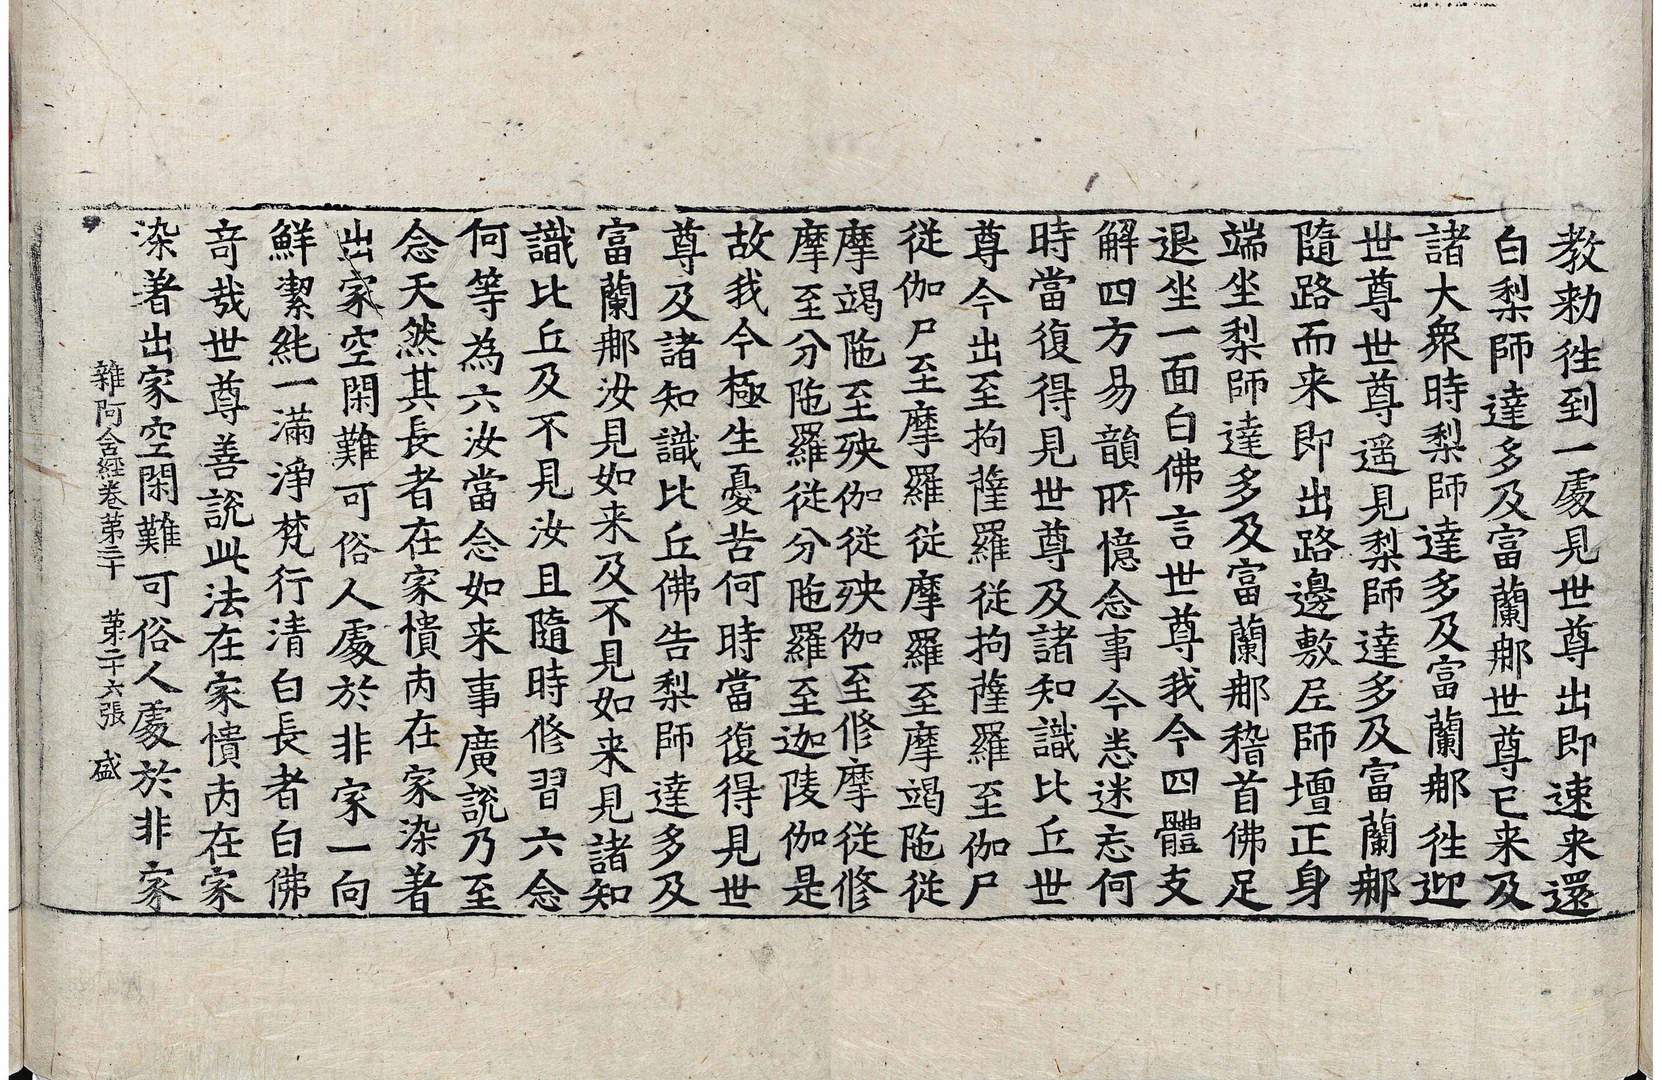 教勑徃到一處見世尊出即速来還
白梨師達多及富蘭那世尊已来及
諸大衆時梨師達多及富蘭那徃迎
世尊世尊遥見梨師達多及富蘭那
隨路而来即出路邊敷尼師壇正身
端坐梨師達多及富蘭那稽首佛足
退坐一面白佛言世尊我今四體支
解四方易韻所憶念事今悉迷忘何
時當復得見世尊及諸知識比丘世
尊今出至拘薩羅從拘薩羅至伽尸
從伽尸至摩羅從摩羅至摩竭陁從
摩竭陁至殃伽從殃伽至修摩從修
摩至分陁羅從分陁羅至迦陵伽是
故我今極生憂苦何時當復得見世
尊及諸知識比丘佛告梨師達多及
富蘭那汝見如来及不見如来見諸知
識比丘及不見汝且隨時修習六念
何等為六汝當念如来事廣說乃至
念天然其長者在家憒丙在家染著
出家空閑難可俗人處於非家一向
鮮潔純一滿淨梵行清白長者白佛
竒㢤世尊善說此法在家憒丙在家
染著出家空閑難可俗人處於非家
雜阿含經卷第三十 第二十六張 盛